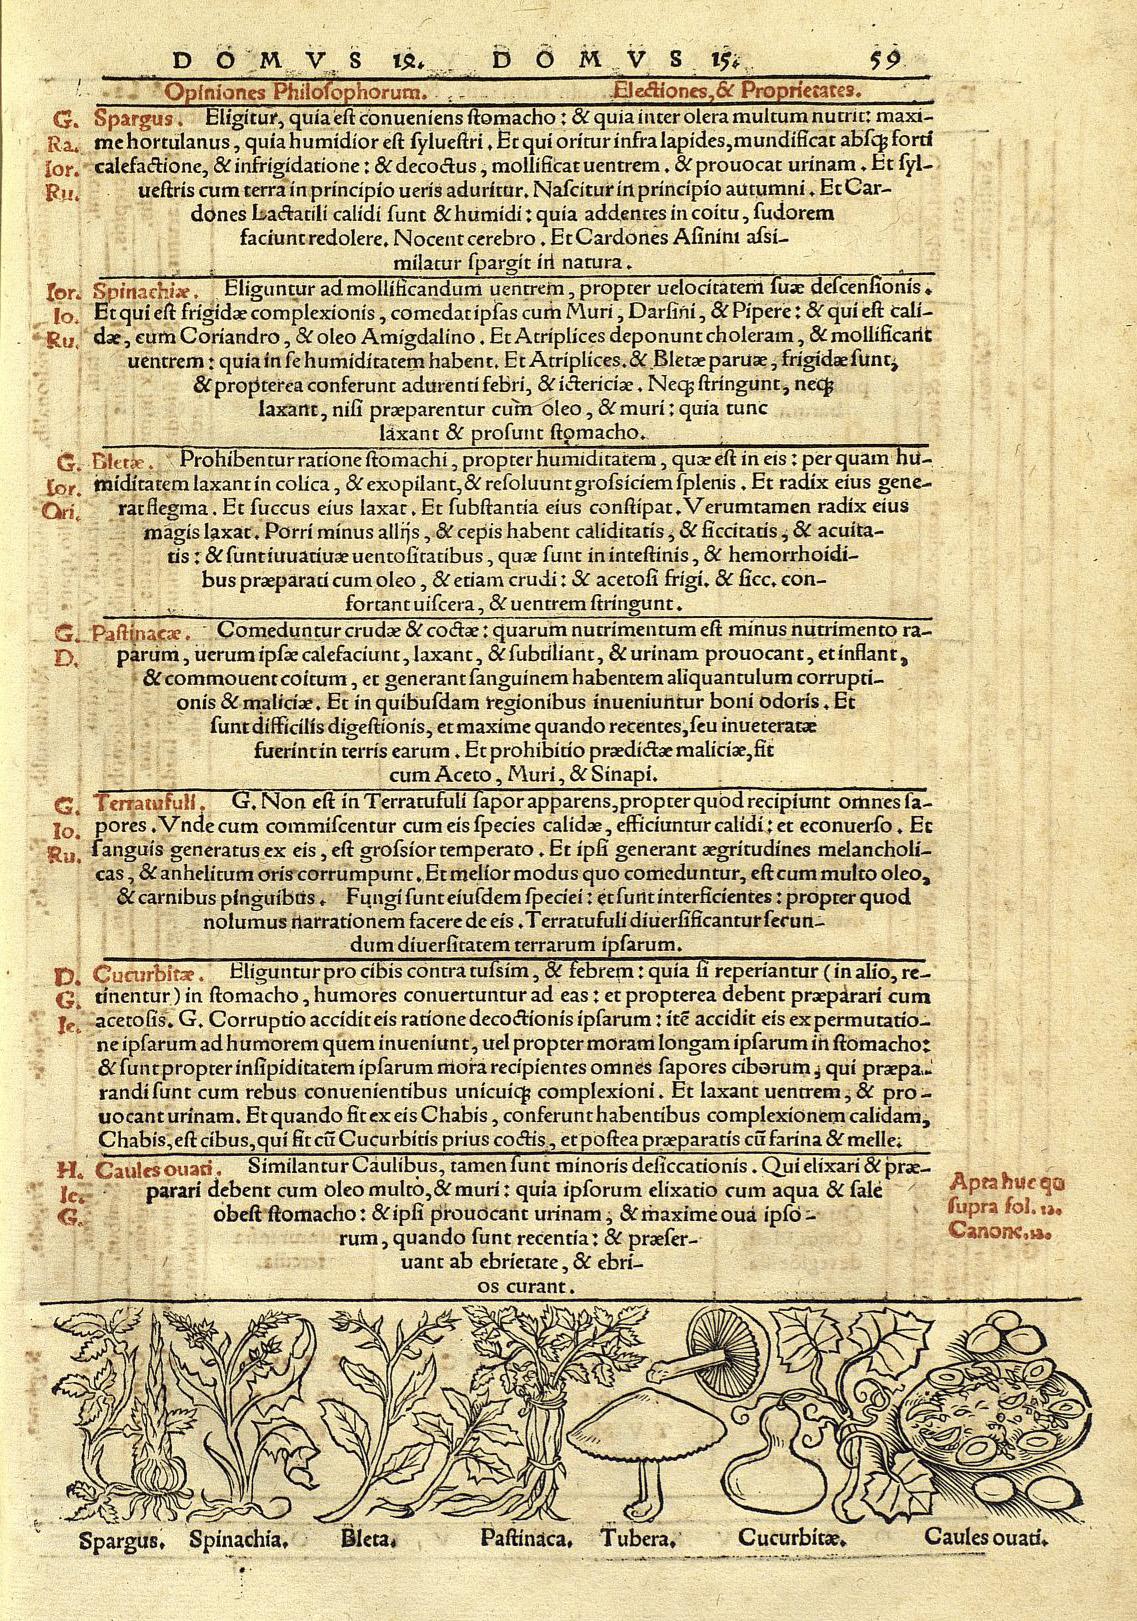 DOMVS 12. DOMVS 15. 59
Opiniones Philosophorum. Electiones, & Proprietates.
G. Spargus. Eligitur, quia est conueniens stomacho: & quia inter olera multum nutrit: maxi-
Ra. me hortulanus, quia humidior est syluestri. Et qui oritur infra lapides, mundificat absq; forti
Ior. calefactione, & infrigidatione: & decoctus, mollificat uentrem. & prouocat urinam. Et syl-
Ru. uestris cum terra in principio ueris aduritur. Nascitur in principio autumni. Et Car-
dones Lactatili calidi sunt & humidi: quia addentes in coitu, sudorem
faciunt redolere. Nocent cerebro. Et Cardones Asinini assi-
milatur spargit in natura.
Ior. Spinachiæ. Eliguntur ad mollificandum uentrem, propter uelocitatem suæ descensionis.
Io. Et qui est frigidæ complexionis, comedat ipsas cum Muri, Darsini, & Pipere: & qui est cali-
Ru. dæ, cum Coriandro, & oleo Amigdalino. Et Atriplices deponunt choleram, & mollificant
uentrem: quia in se humiditatem habent. Et Atriplices. & Bletæ paruæ, frigidæ sunt,
& propterea conferunt adurenti febri, & ictericiæ. Neq; stringunt, neq;
laxant, nisi præparentur cum oleo, & muri: quia tunc
laxant & prosunt stomacho.
G. Bletæ. Prohibentur ratione stomachi, propter humiditatem, quæ est in eis: per quam hu-
Ior. miditatem laxant in colica, & exopilant, & resoluunt grossiciem splenis. Et radix eius gene-
Ori. rat flegma. Et succus eius laxat. Et substantia eius constipat. Verumtamen radix eius
magis laxat. Porri minus allijs, & cepis habent caliditatis, & siccitatis, & acuita-
tis: & sunt iuuatiuæ uentositatibus, quæ sunt in intestinis, & hemorrhoidi-
bus præparati cum oleo, & etiam crudi: & acetosi frigi. & sicc. con-
fortant uiscera, & uentrem stringunt.
G. Pastinacæ. Comeduntur crudæ & coctæ: quarum nutrimentum est minus nutrimento ra-
D. parum, uerum ipsæ calefaciunt, laxant, & subtiliant, & urinam prouocant, et inflant,
& commouent coitum, et generant sanguinem habentem aliquantulum corrupti-
onis & maliciæ. Et in quibusdam regionibus inueniuntur boni odoris. Et
sunt difficilis digestionis, et maxime quando recentes, seu inueteratæ
fuerint in terris earum. Et prohibitio prædictæ maliciæ, fit
cum Aceto, Muri, & Sinapi.
G. Terratufuli. G. Non est in Terratufuli sapor apparens, propter quod recipiunt omnes sa-
Io. pores. Vnde cum commiscentur cum eis species calidæ, efficiuntur calidi: et econuerso. Et
Ru. sanguis generatus ex eis, est grossior temperato. Et ipsi generant ægritudines melancholi-
cas, & anhelitum oris corrumpunt. Et melior modus quo comeduntur, est cum multo oleo,
& carnibus pinguibus. Fungi sunt eiusdem speciei: et sunt interficientes: propter quod
nolumus narrationem facere de eis. Terratufuli diuersificantur secun-
dum diuersitatem terrarum ipsarum.
D. Cucurbitæ. Eliguntur pro cibis contra tussim, & febrem: quia si reperiantur (in alio, re-
G. tinentur) in stomacho, humores conuertuntur ad eas: et propterea debent præparari cum
Ie. acetosis. G. Corruptio accidit eis ratione decoctionis ipsarum: itē accidit eis ex permutatio-
ne ipsarum ad humorem quem inueniunt, uel propter moram longam ipsarum in stomacho:
& sunt propter insipiditatem ipsarum mora recipientes omnes sapores ciborum, qui præpa-
randi sunt cum rebus conuenientibus unicuiq; complexioni. Et laxant uentrem, & pro-
uocant urinam. Et quando fit ex eis Chabis, conferunt habentibus complexionem calidam,
Chabis, est cibus, qui fit cū Cucurbitis prius coctis, et postea præparatis cū farina & melle.
H. Caules ouati. Similantur Caulibus, tamen sunt minoris desiccationis. Qui elixari & præ-
Ie. parari debent cum oleo multo, & muri: quia ipsorum elixatio cum aqua & sale
G. obest stomacho: & ipsi prouocant urinam, & maxime oua ipso-
rum, quando sunt recentia: & præser-
uant ab ebrietate, & ebri-
os curant.
Apta huc qđ
supra fol. 12.
Canone. 12.
Spargus. Spinachia. Bleta. Pastinaca. Tubera. Cucurbitæ. Caules ouati.